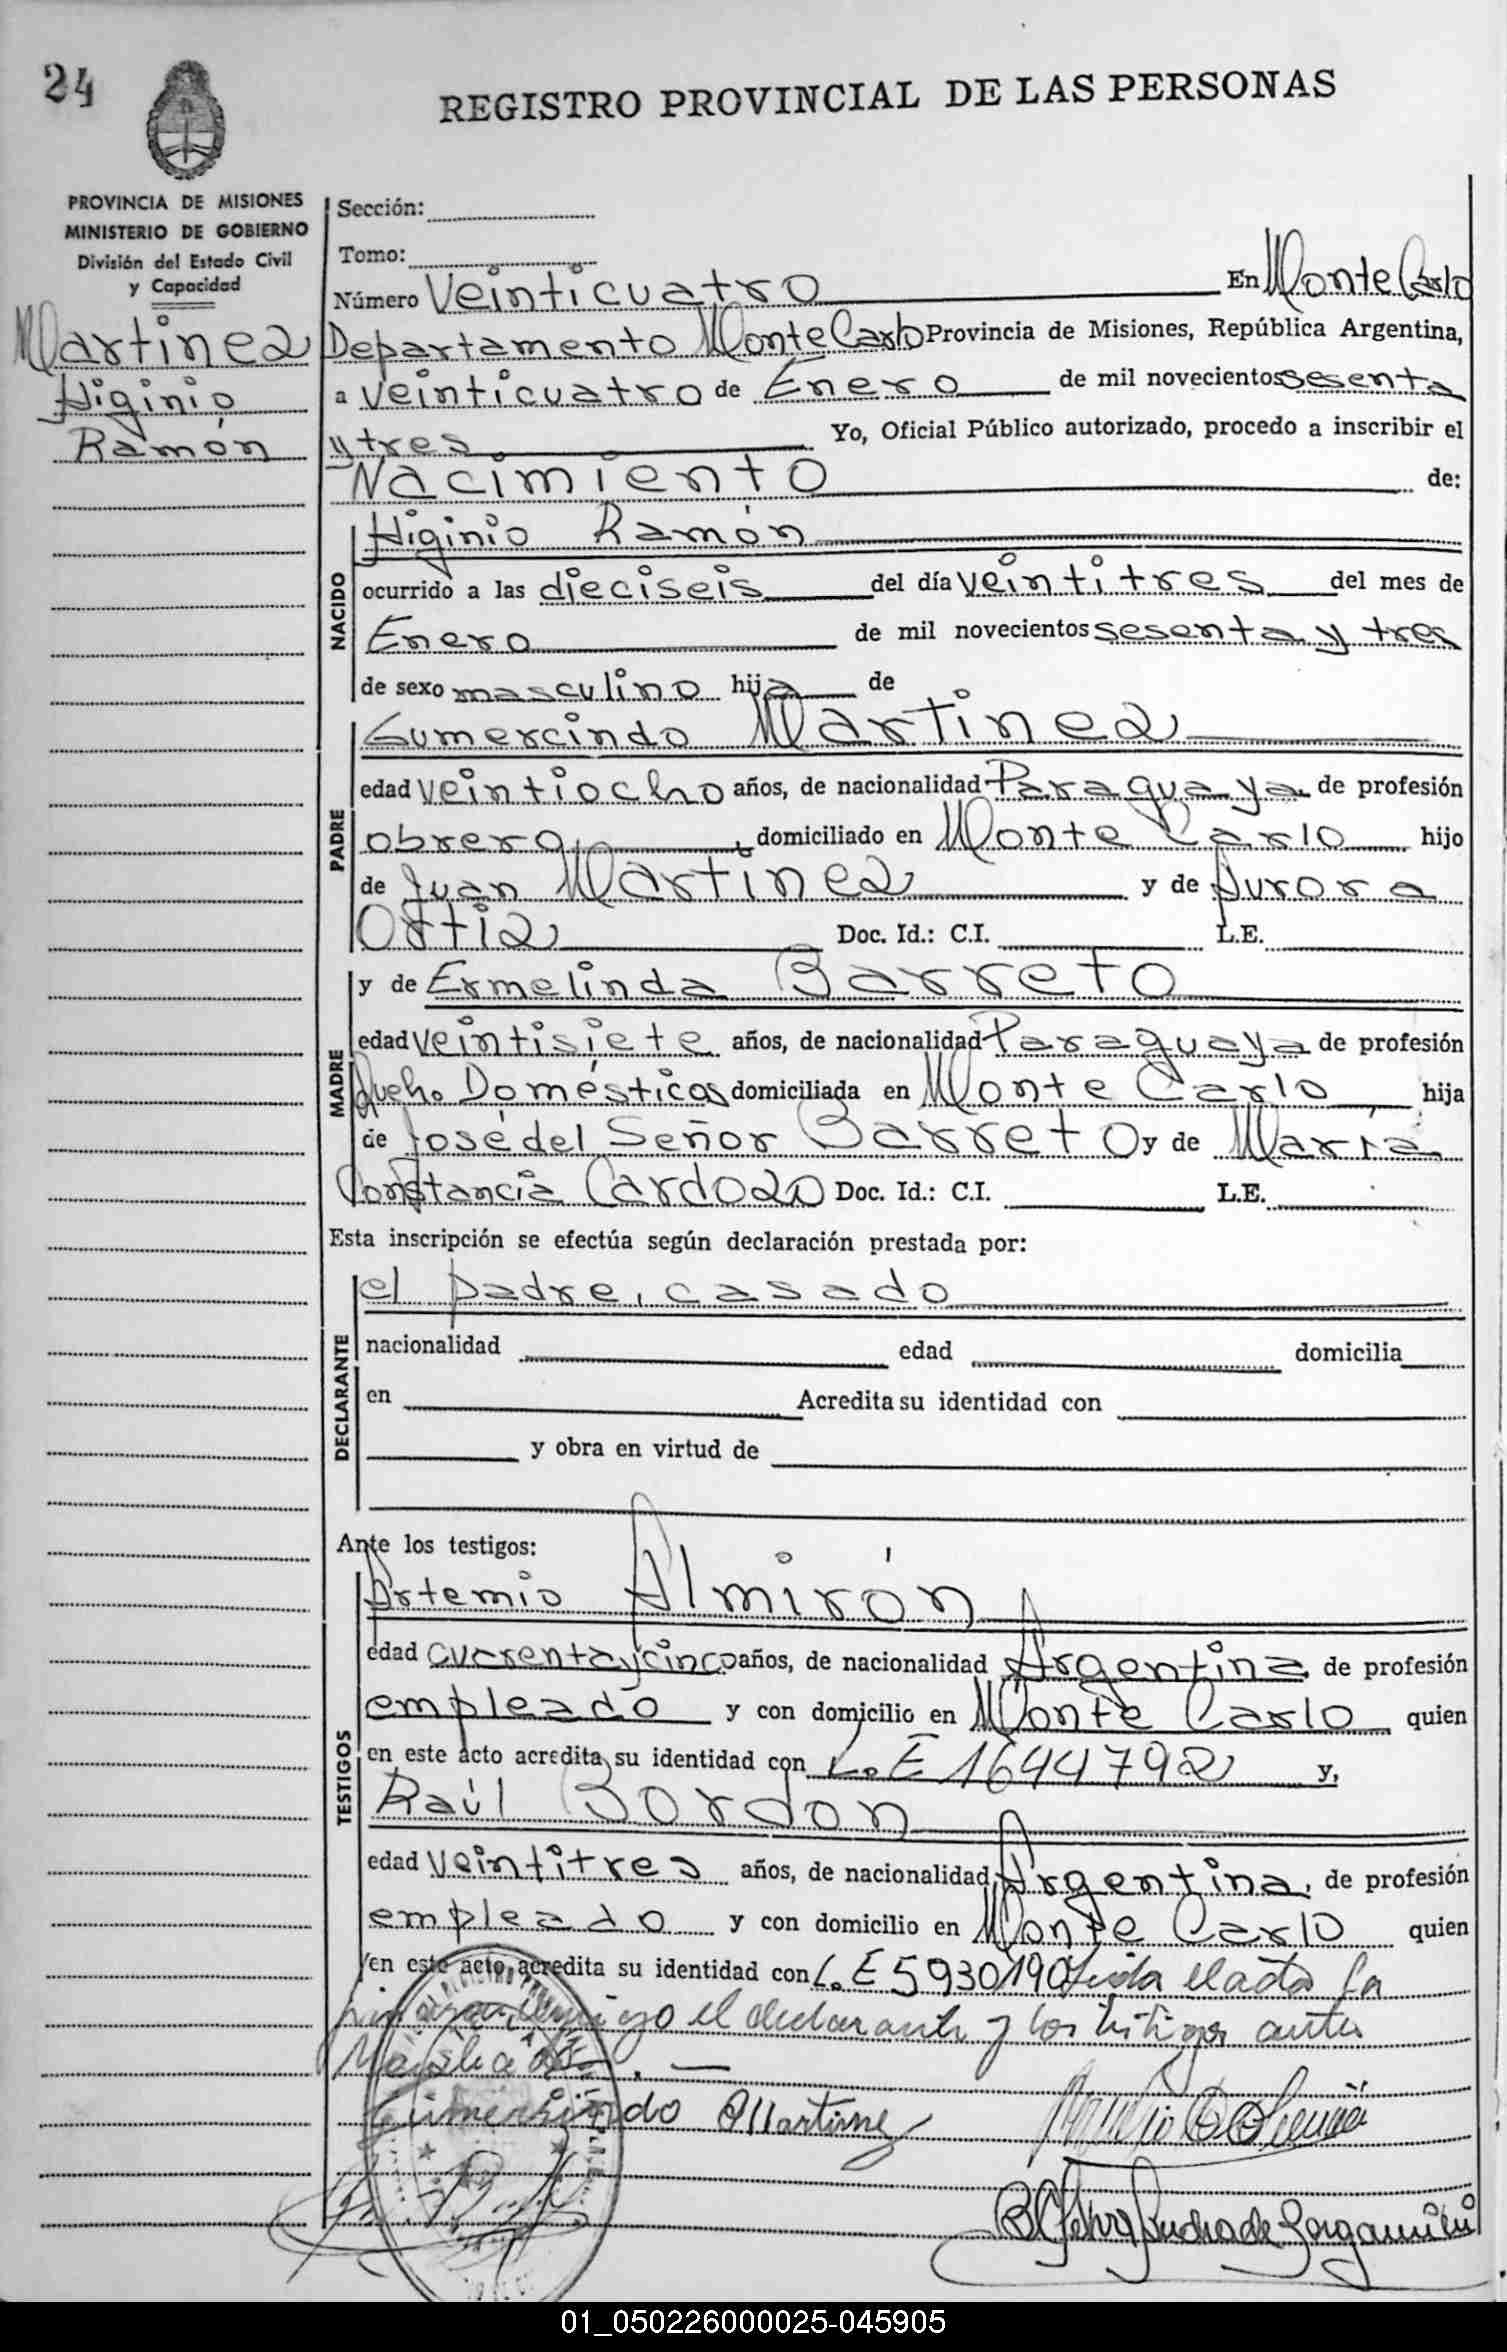 24
REGISTRO PROVINCIAL DE LAS PERSONAS
PROVINCIA DE MISIONES
MINISTERIO DE GOBIERNO
División del Estado Civil
y Capacidad
Martinez
Higinio
Ramón
Sección:
Tomo:
Número Veinticuatro En Monte Carlo
Departamento Monte Carlo Provincia de Misiones, República Argentina,
a veinticuatro de Enero de mil novecientos sesenta
y tres Yo, Oficial Público autorizado, procedo a inscribir el
Nacimiento de:
NACIDO
Higinio Ramón
ocurrido a las dieciseis del día veintitres del mes de
Enero de mil novecientos sesenta y tres
de sexo masculino hija de
PADRE
Gumercindo Martinez
edad veintiocho años, de nacionalidad Paraguaya de profesión
obrero, domiciliado en Monte Carlo hijo
de Juan Martinez y de Aurora
Ortiz Doc. Id.: C.I. L.E.
MADRE
y de Ermelinda Barreto
edad veintisiete años, de nacionalidad Paraguaya de profesión
Queh. Domésticos domiciliada en Monte Carlo hija
de José del Señor Barreto y de María
Constancia Cardozo Doc. Id.: C.I. L.E.
Esta inscripción se efectúa según declaración prestada por:
DECLARANTE
el padre, casado
nacionalidad edad domicilia
en Acredita su identidad con
y obra en virtud de
Ante los testigos:
TESTIGOS
Artemio Almirón
edad cuarenta y cinco años, de nacionalidad Argentina de profesión
empleado y con domicilio en Monte Carlo quien
en este acto acredita su identidad con L. E 1644792 y,
Raúl Bordon
edad veintitres años, de nacionalidad Argentina, de profesión
empleado y con domicilio en Monte Carlo quien
en este acto acredita su identidad con L. E 5930190 Leida el acta la
el declarante y los testigos ante
Gumersindo Martinez
01_050226000025-045905